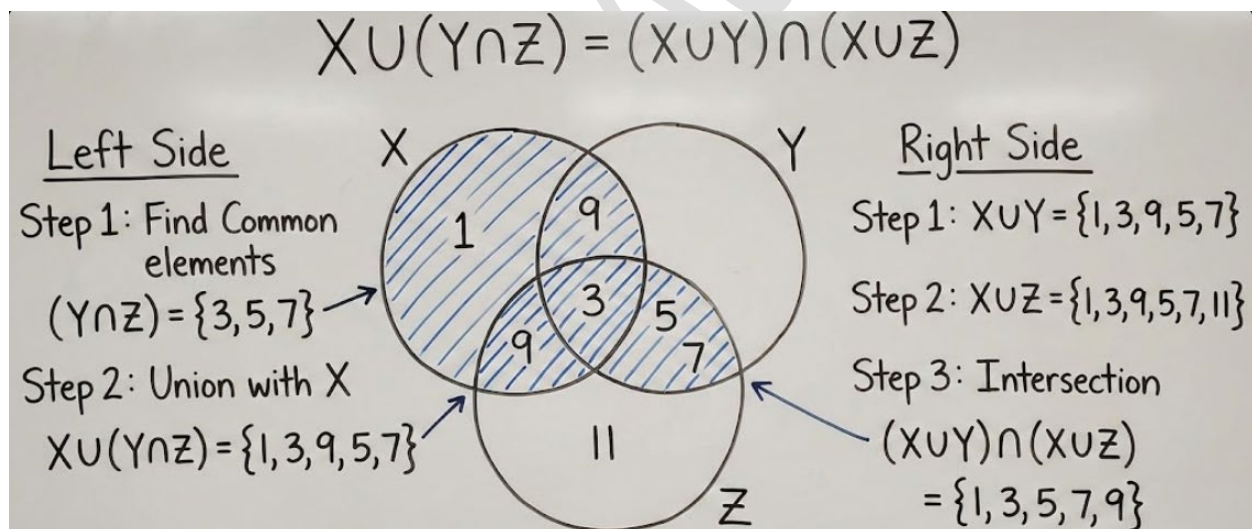 X∪(Y∩Z) = (X∪Y)∩(X∪Z)
Left Side
Step 1: Find Common
elements
(Y∩Z) = {3,5,7}
Step 2: Union with X
X∪(Y∩Z) = {1,3,9,5,7}
X
Y
1
9
3
5
9
7
11
Z
Right Side
Step 1: X∪Y = {1,3,9,5,7}
Step 2: X∪Z = {1,3,9,5,7,11}
Step 3: Intersection
(X∪Y)∩(X∪Z)
= {1,3,5,7,9}